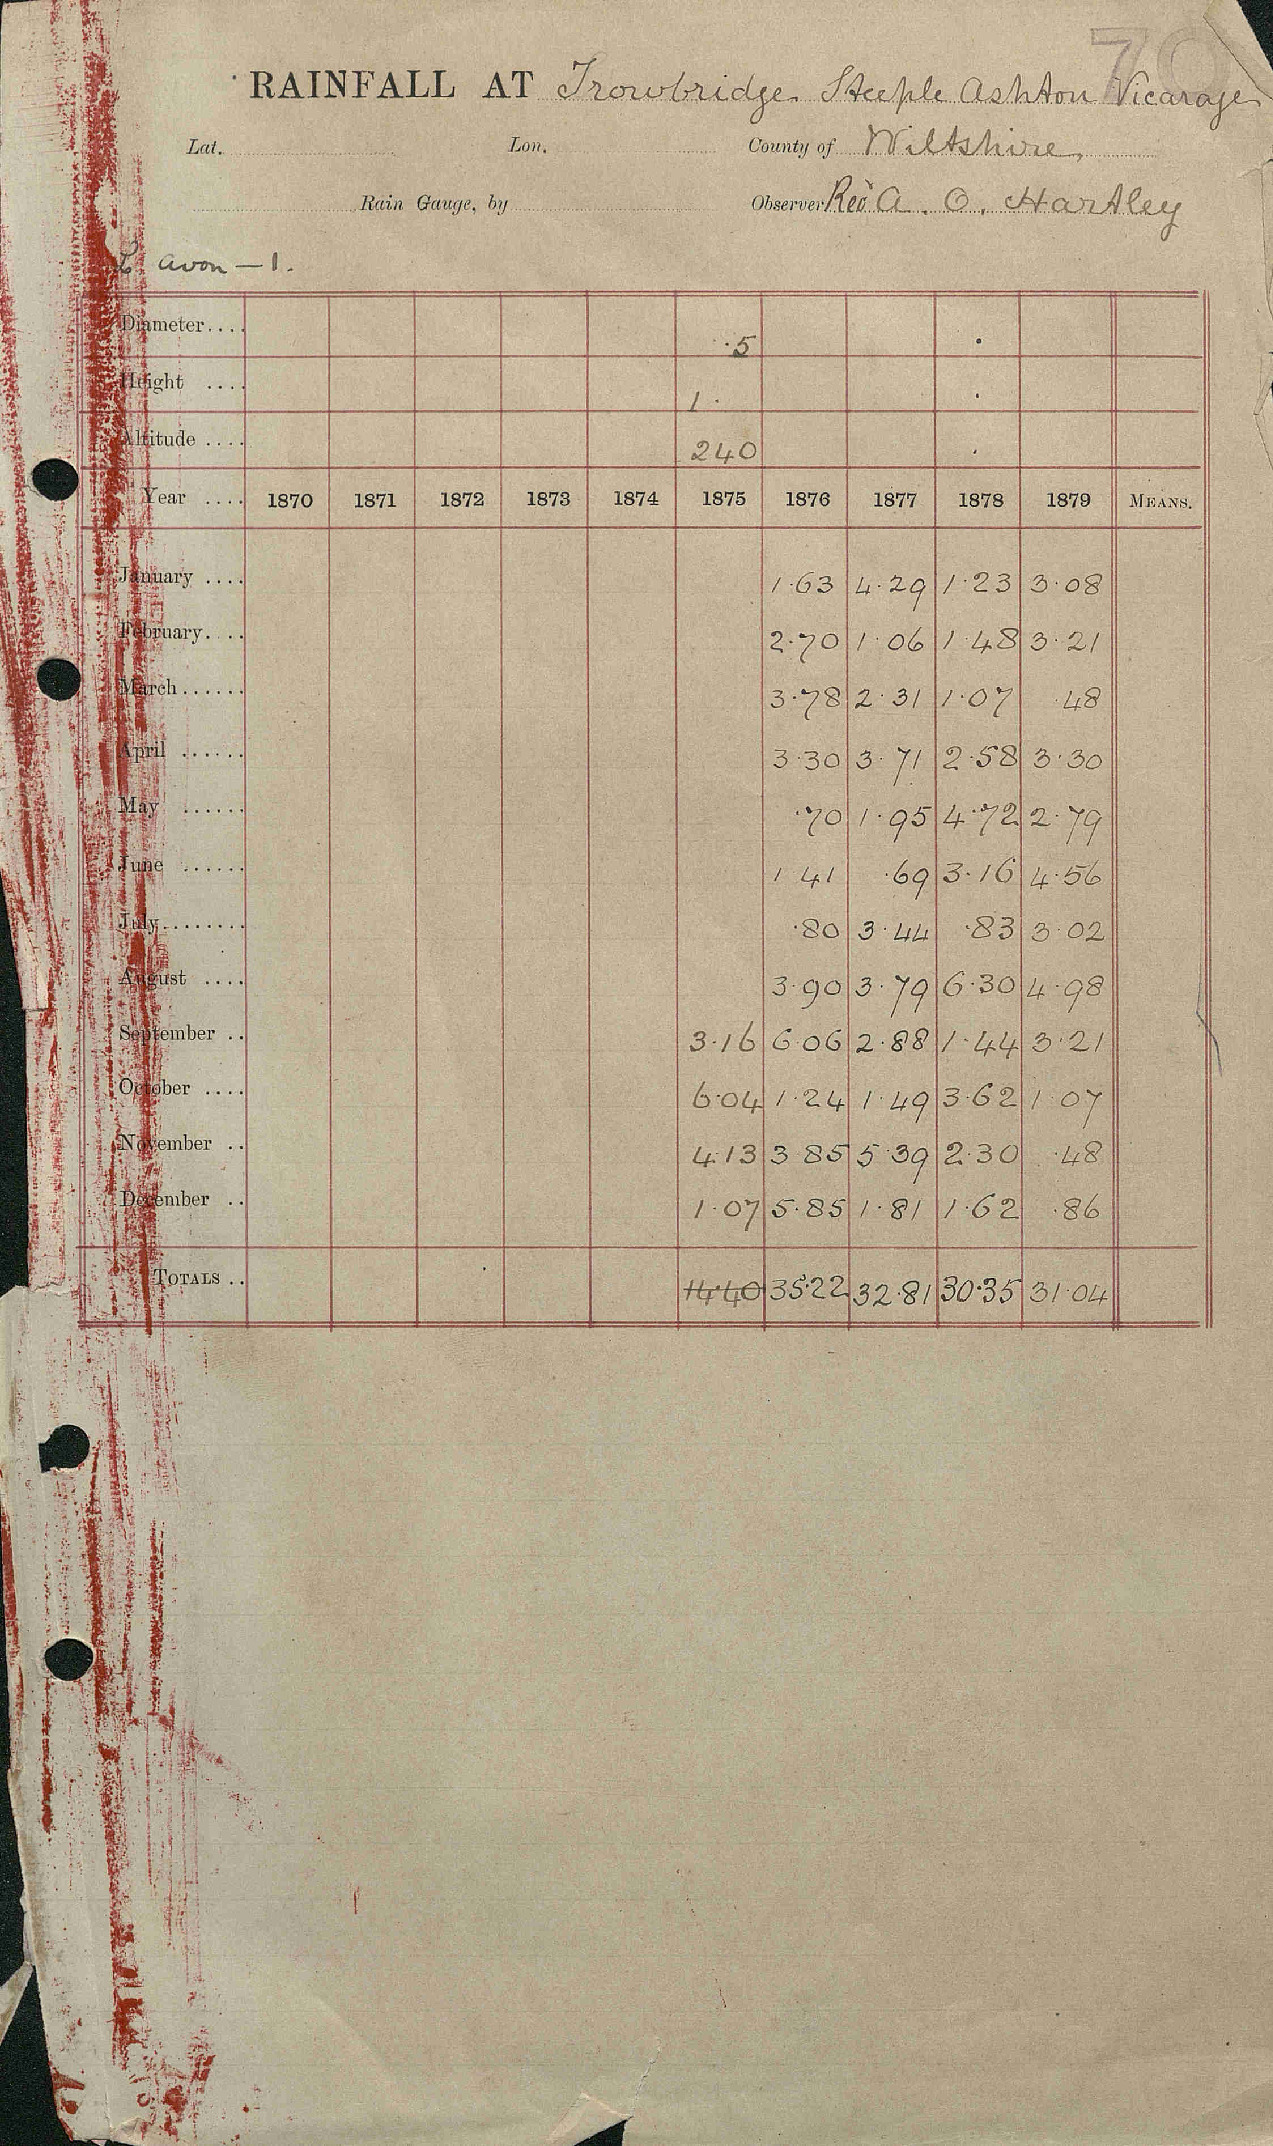 70
RAINFALL AT Trowbridge. Steeple Ashton Vicarage
Lat. Lon. County of Wiltshire
Rain Gauge, by Observer Rev A. O. Hartley
avon — 1.
Diameter.... ·5
Height .... 1·
Altitude .... 240
Year .... 1870 1871 1872 1873 1874 1875 1876 1877 1878 1879 MEANS.
January .... 1·63 4·29 1·23 3·08
February.... 2·70 1·06 1·48 3·21
March...... 3·78 2·31 1·07 ·48
April ...... 3·30 3·71 2·58 3·30
May ...... ·70 1·95 4·72 2·79
June ...... 1 41 ·69 3·16 4·56
July........ ·80 3·44 ·83 3·02
August .... 3·90 3·79 6·30 4·98
September .. 3·16 6 06 2·88 1·44 3·21
October .... 6·04 1·24 1·49 3·62 1·07
November .. 4·13 3 85 5·39 2·30 ·48
December .. 1·07 5·85 1·81 1·62 ·86
TOTALS .. 14·40 35·22 32·81 30·35 31·04